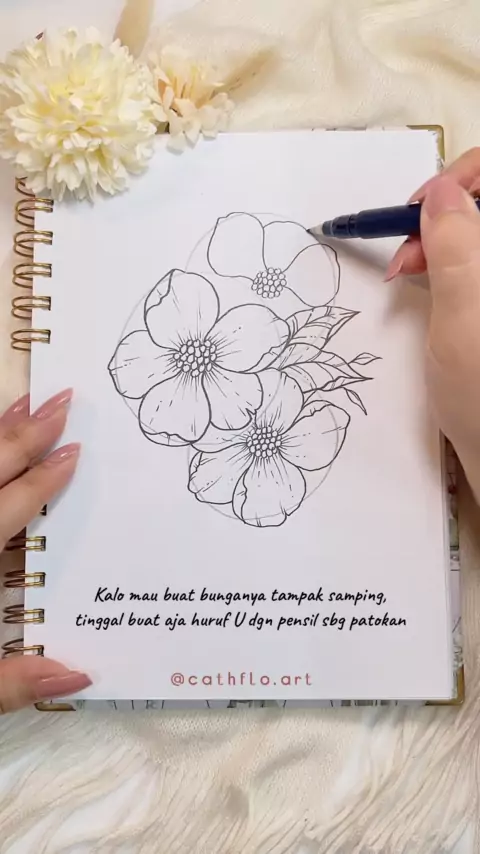 Kalo mau buat bunganya tampak samping,
tinggal buat aja huruf U dgn pensil sbg patokan
@cathflo.art